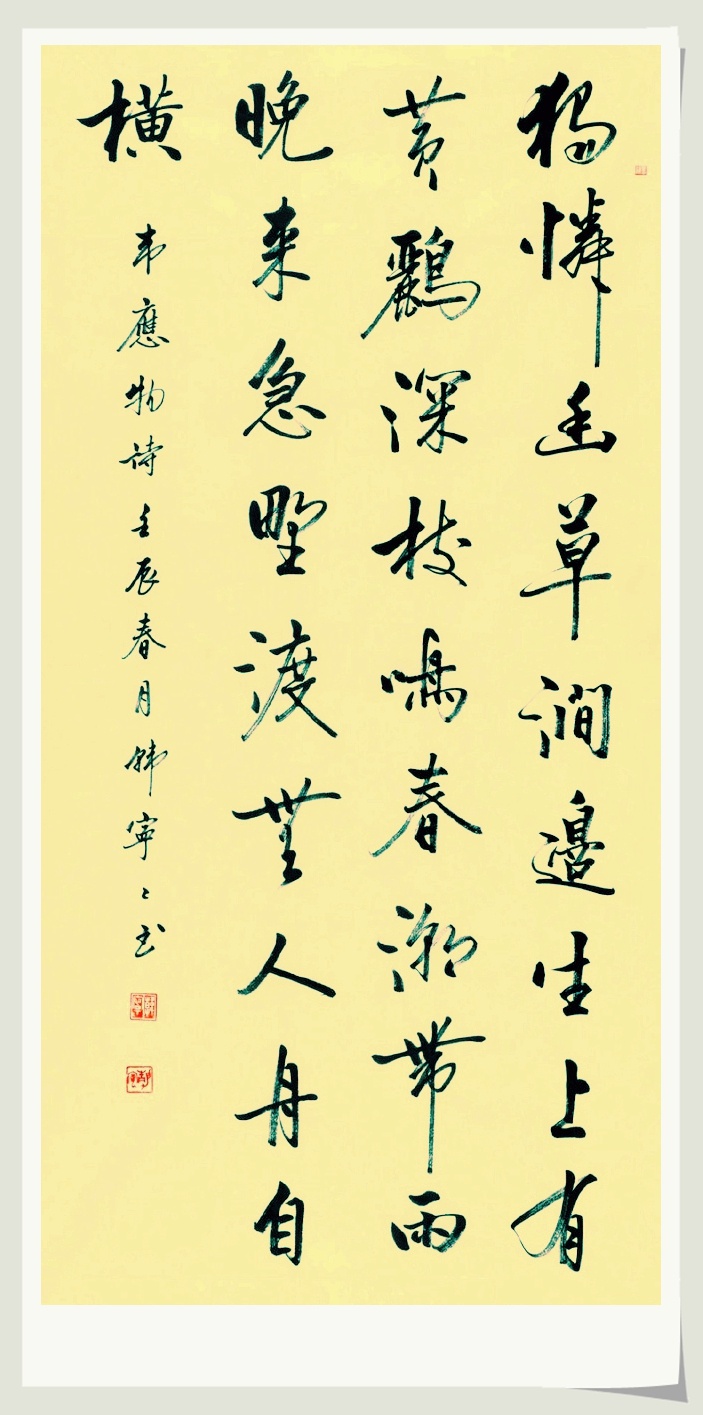 獨憐幽草澗邊生上有
黄鸝深枝鳴春潮帶雨
晚来急野渡無人舟自
橫
韦應物诗壬辰春月韩寧〻书